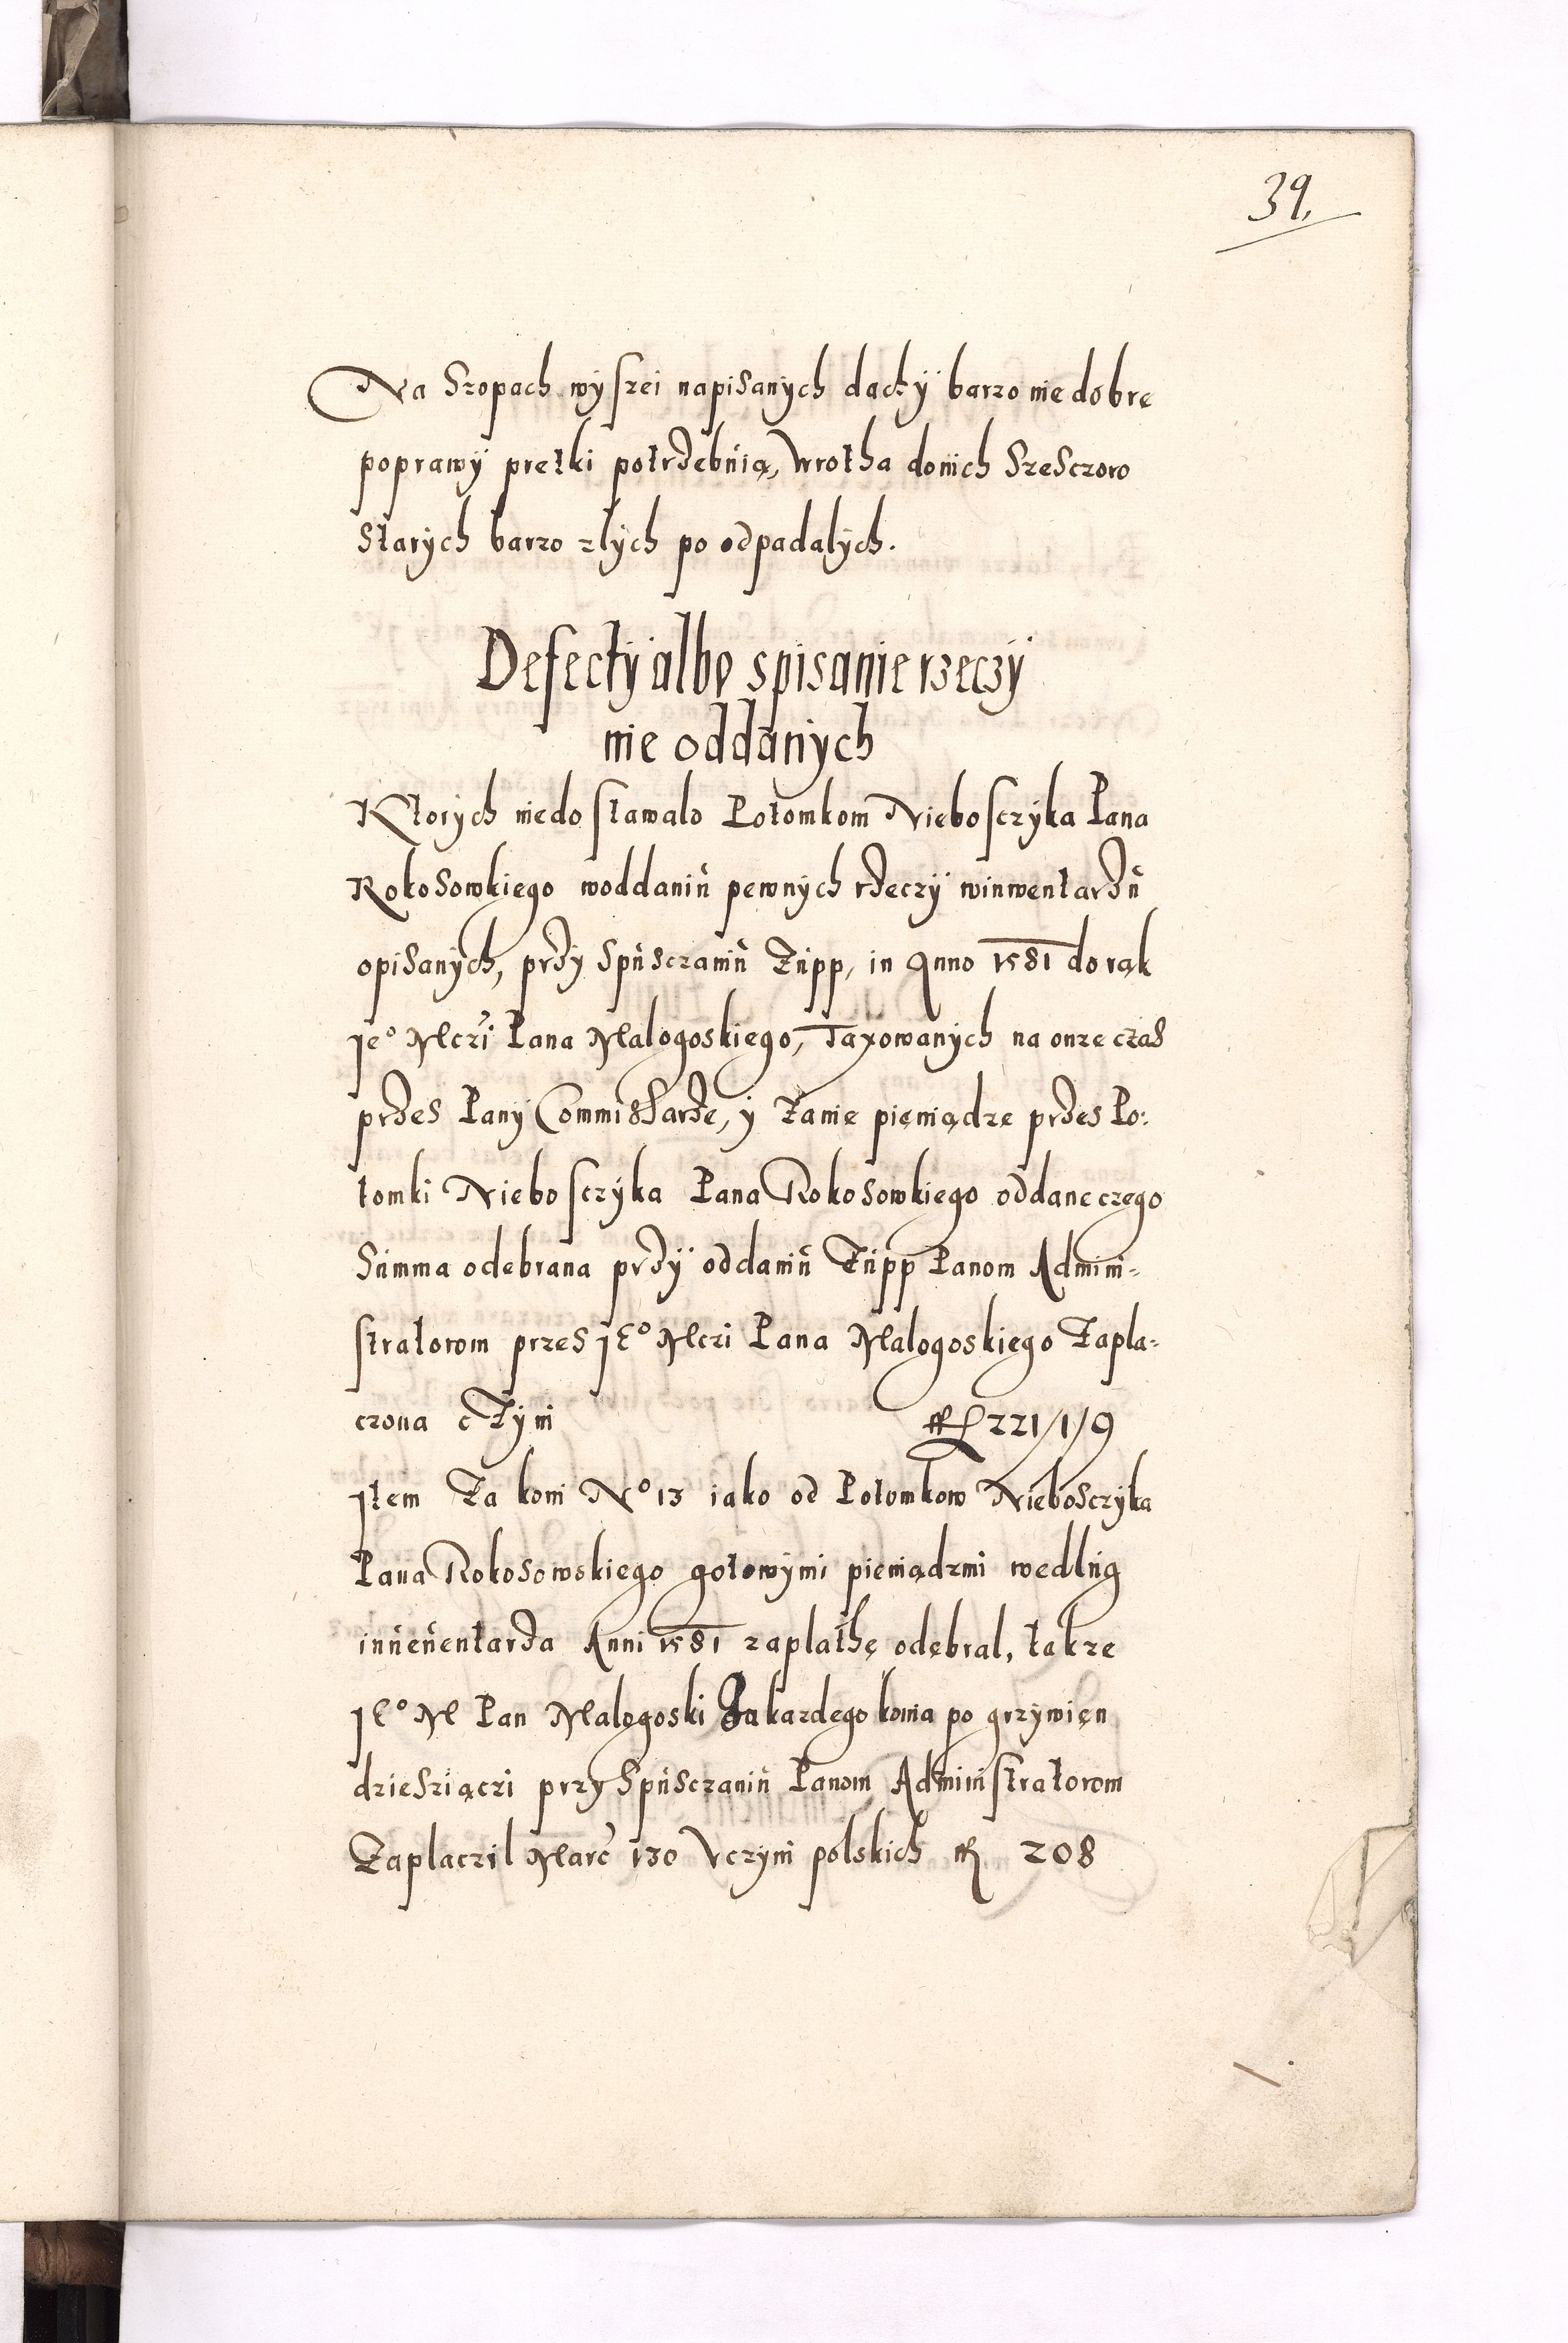 39.
Na Szopach wÿszei napisanÿch dachÿ barzo nie dobre
poprawÿ pretki potrzebuią, Wrotha do nich Szesczoro
Starÿch barzo złÿch po odpadałÿch.
Defectÿ albo spisanie rzeczÿ
nie oddanÿch
Ktorÿch niedostawało Potomkom Nieboszczÿka Pana
Rokosowkiego w oddaniu pewnÿch rzeczÿ w inwentarzu
opisanÿch, przÿ Spusczaniu Zupp, in Anno 1581 do rąk
Je° Mczi Pana Malogoskiego, Taxowanÿch na onze czas
przes Panÿ Commissarze, ÿ Zanie pieniądze przes Po:
tomki Niebosczÿka Pana Rokosowkiego oddane czego
Summa odebrana przÿ oddaniu Zupp Panom Admini-
stratorom przes JE° Mczi Pana Malogoskiego Zapla-
czona c Zÿni fl 221/1/9
Item Za koni N° 13 iako od Potomkow Niebosczÿka
Pana Rokosowskiego gotowÿmi pieniądzmi wedlug
inuentarza Anni 1581 zaplathę odebral, takze
JE° M Pan Malogoski Za kazdego konia po grzÿwien
dziesziączi przy Spusczaniu Panom Administratorom
Zaplaczil Marc 130 Vczÿni polskich fl 208